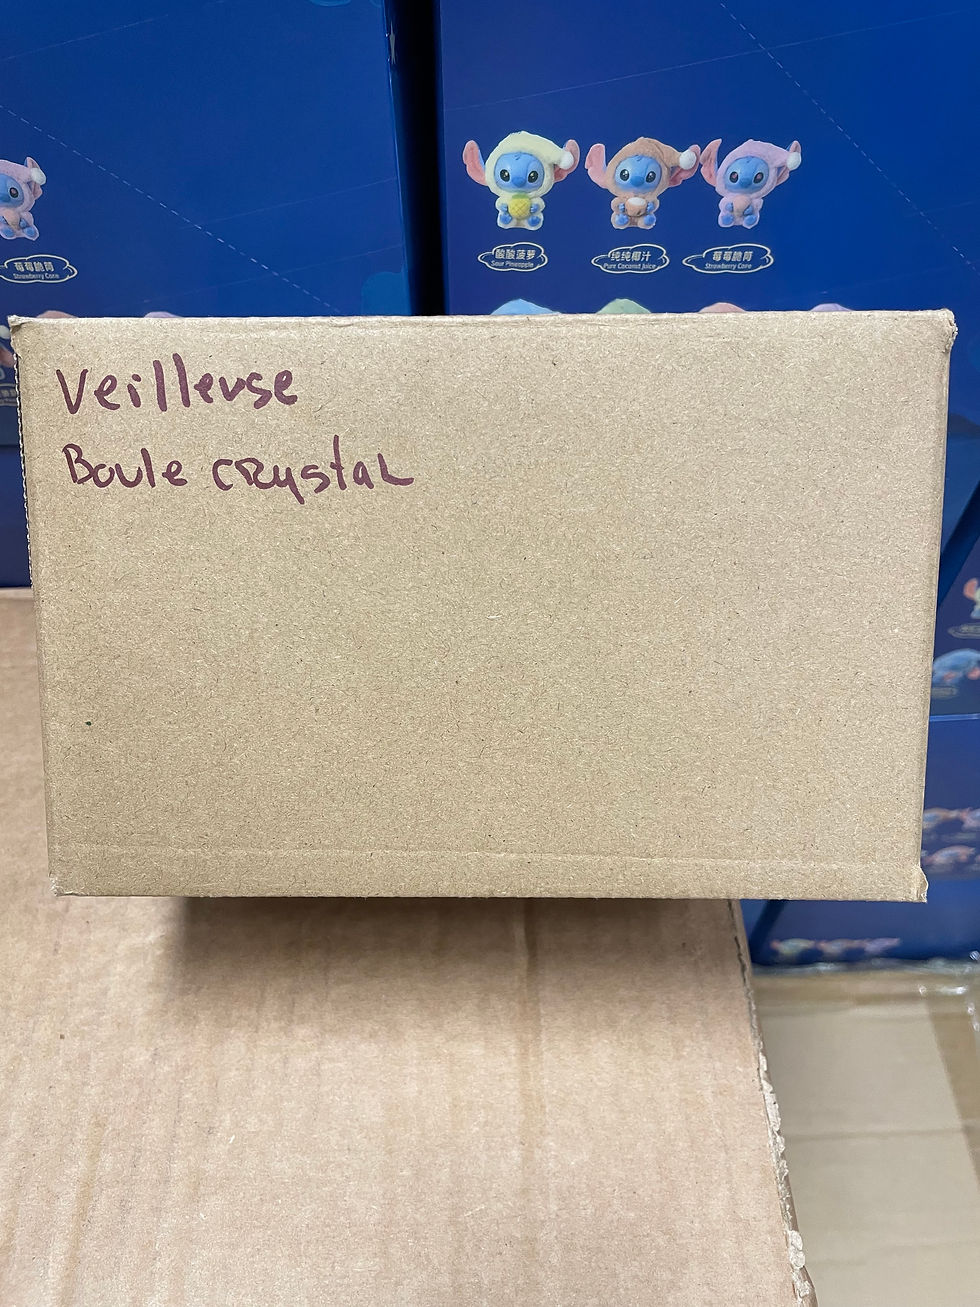 酸酸菠萝
Sour Pineapple
纯纯椰汁
Pure Coconut Juice
莓莓脆筒
Strawberry Cone
莓莓脆筒
Strawberry Cone
Veilleuse
Boule crystal